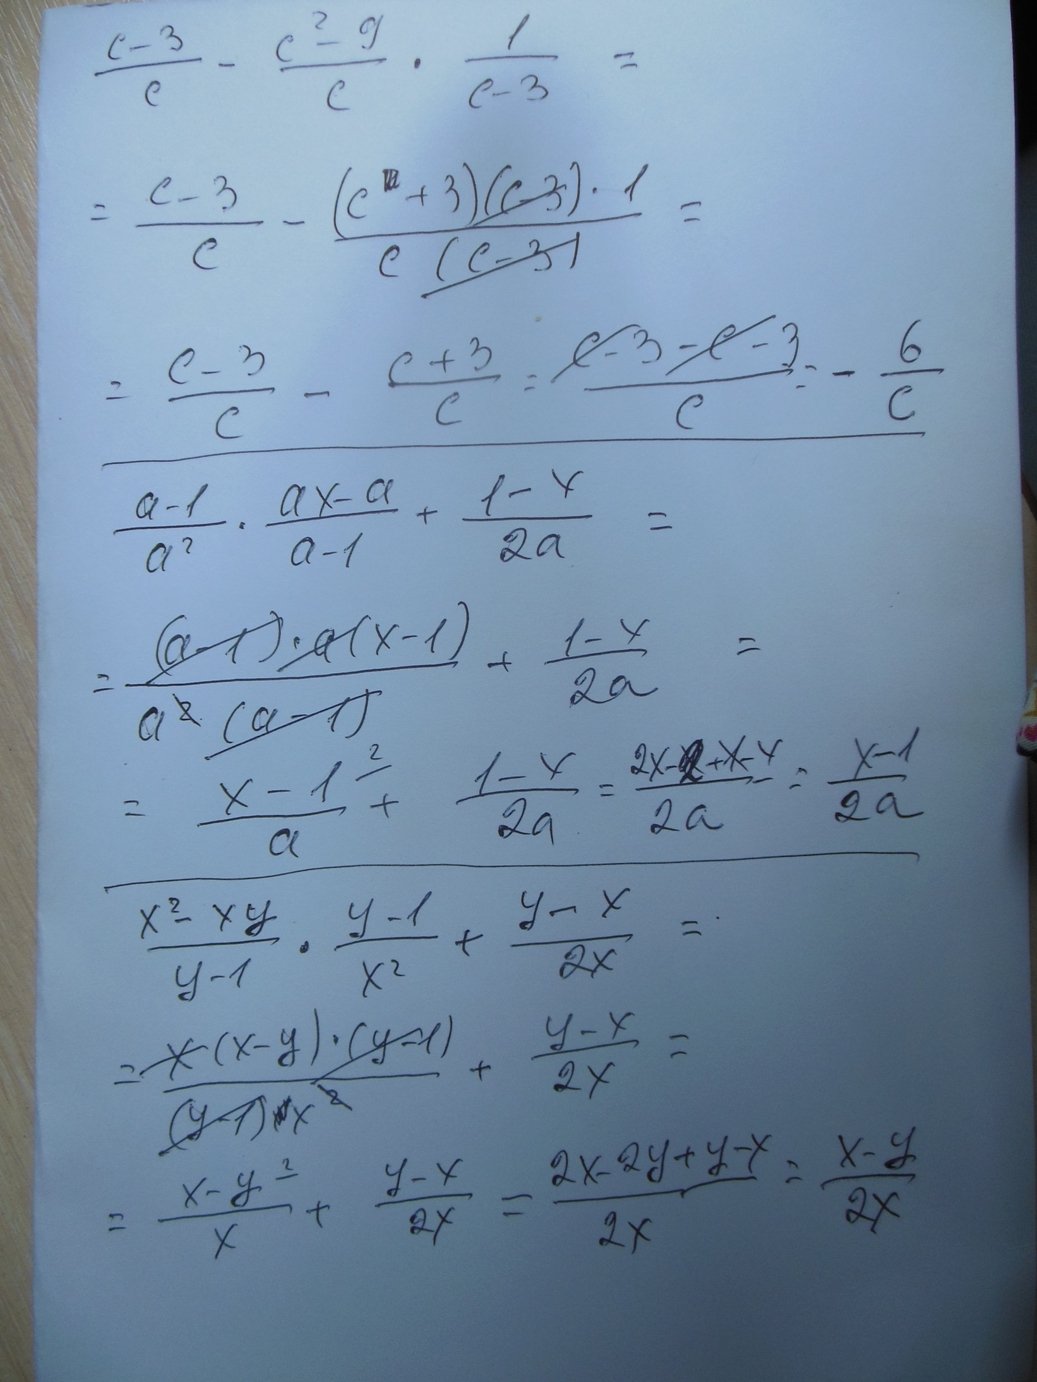 (c-3)/c - (c²-9)/c · 1/(c-3) =
= (c-3)/c - ((c+3)(c-3)·1)/(c(c-3)) =
= (c-3)/c - (c+3)/c = (c-3-c-3)/c = - 6/c
(a-1)/a² · (ax-a)/(a-1) + (1-x)/2a =
= ((a-1)·a(x-1))/(a²(a-1)) + (1-x)/2a =
= (x-1)/a ² + (1-x)/2a = (2x-2+x-x)/2a = (x-1)/2a
(x²-xy)/(y-1) · (y-1)/x² + (y-x)/2x =
= (x(x-y)·(y-1))/((y-1)x²) + (y-x)/2x =
= (x-y)/x ² + (y-x)/2x = (2x-2y+y-x)/2x = (x-y)/2x